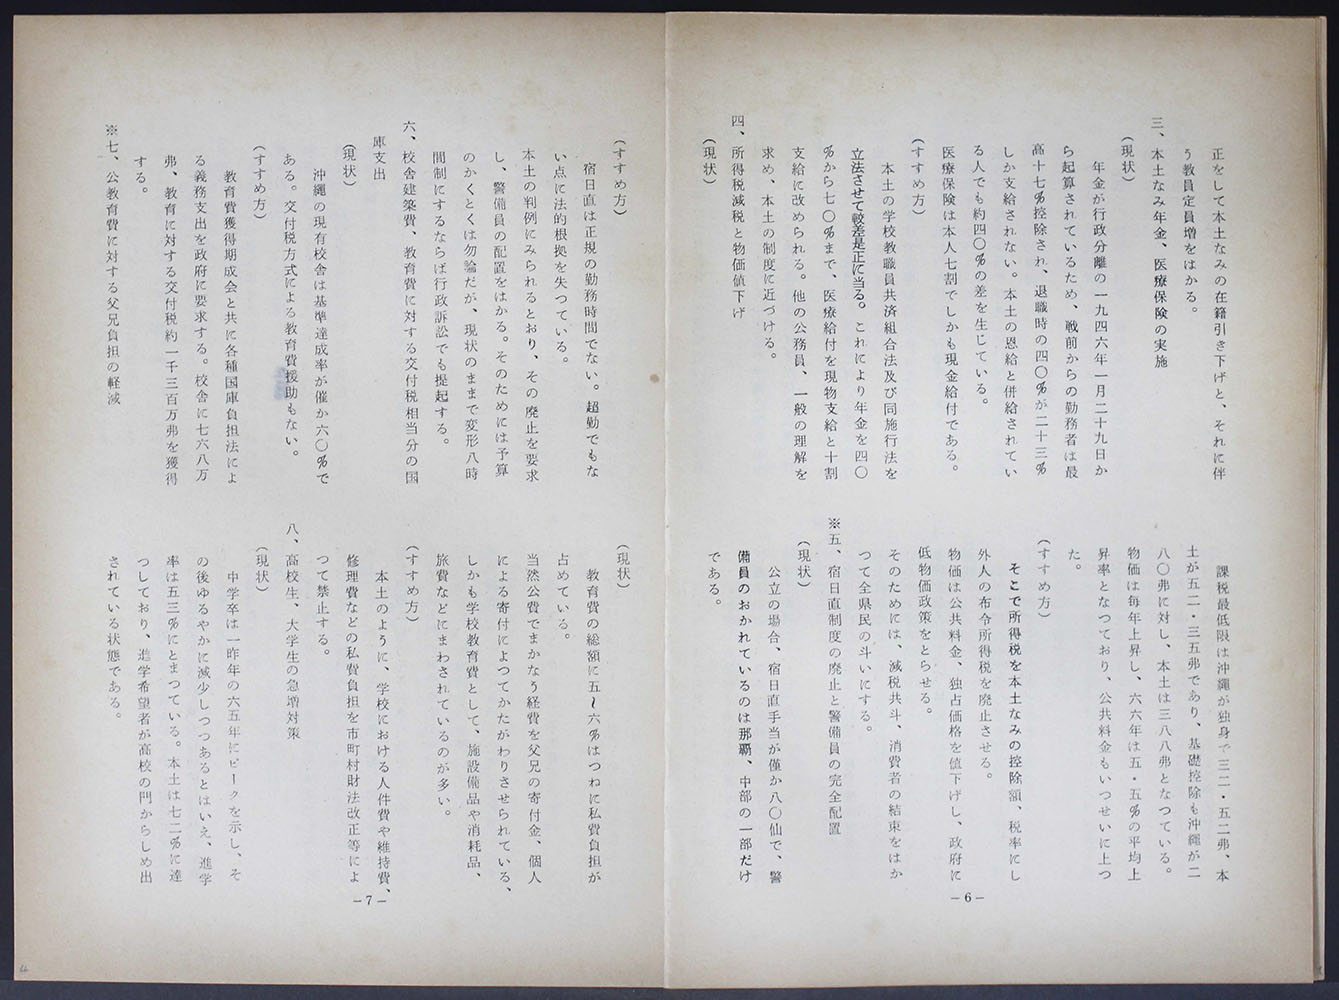 正をして本土なみの在籍引き下げと、それに伴
う教員定員増をはかる。
三、本土なみ年金、医療保険の実施
(現状)
年金が行政分離の一九四六年一月二十九日か
ら起算されているため、戦前からの勤務者は最
高十七%控除され、退職時の四〇%が二十三%
しか支給されない。本土の恩給と併給されてい
る人でも約四〇%の差を生じている。
医療保険は本人七割でしかも現金給付である。
(すすめ方)
本土の学校教職員共済組合法及び同施行法を
立法させて較差是正に当る。これにより年金を四〇
%から七〇%まで、医療給付を現物支給と十割
支給に改められる。他の公務員、一般の理解を
求め、本土の制度に近づける。
四、所得税減税と物価値下げ
(現状)
課税最低限は沖縄が独身で三二・五二弗、本
土が五二・三五弗であり、基礎控除も沖縄が二
八〇弗に対し、本土は三八八弗となつている。
物価は毎年上昇し、六六年は五・五%の平均上
昇率となつており、公共料金もいつせいに上つ
た。
(すすめ方)
そこで所得税を本土なみの控除額、税率にし
外人の布令所得税を廃止させる。
物価は公共料金、独占価格を値下げし、政府に
低物価政策をとらせる。
そのためには、減税共斗、消費者の結束をはか
つて全県民の斗いにする。
※五、宿日直制度の廃止と警備員の完全配置
(現状)
公立の場合、宿日直手当が僅か八〇仙で、警
備員のおかれているのは那覇、中部の一部だけ
である。
－6－
(すすめ方)
宿日直は正規の勤務時間でない。超勤でもな
い点に法的根拠を失つている。
本土の判例にみられるとおり、その廃止を要求
し、警備員の配置をはかる。そのためには予算
のかくとくは勿論だが、現状のままで変形八時
間制にするならば行政訴訟でも提起する。
六、校舎建築費、教育費に対する交付税相当分の国
庫支出
(現状)
沖縄の現有校舎は基準達成率が催か六〇%で
ある。交付税方式による教育費援助もない。
(すすめ方)
教育費獲得期成会と共に各種国庫負担法によ
る義務支出を政府に要求する。校舎に七六八万
弗、教育に対する交付税約一千三百万弗を獲得
する。
※七、公教育費に対する父兄負担の軽減
(現状)
教育費の総額に五～六%はつねに私費負担が
占めている。
当然公費でまかなう経費を父兄の寄付金、個人
による寄付によつてかたがわりさせられている、
しかも学校教育費として、施設備品や消耗品、
旅費などにまわされているのが多い。
(すすめ方)
本土のように、学校における人件費や維持費、
修理費などの私費負担を市町村財法改正等によ
つて禁止する。
八、高校生、大学生の急増対策
(現状)
中学卒は一昨年の六五年にピークを示し、そ
の後ゆるやかに減少しつつあるとはいえ、進学
率は五三%にとまつている。本土は七二%に達
つしており、進学希望者が高校の門からしめ出
されている状態である。
－7－